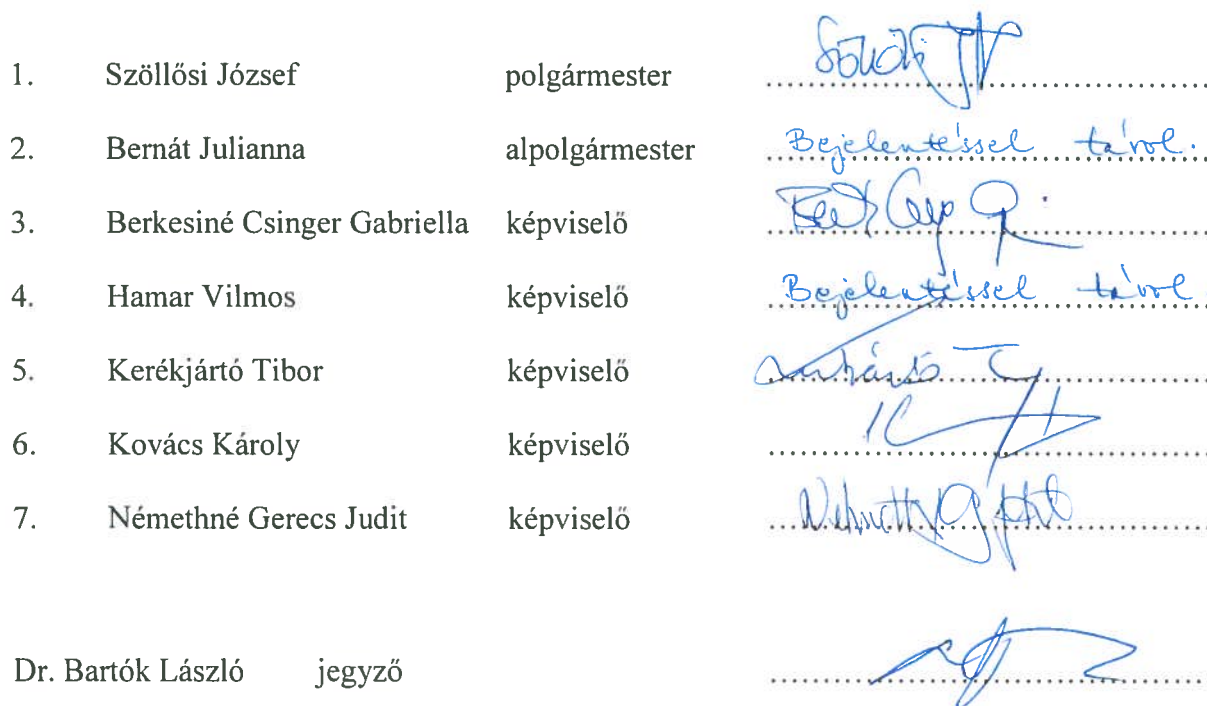 1. Szöllősi József polgármester
2. Bernát Julianna alpolgármester Bejelentéssel távol.
3. Berkesiné Csinger Gabriella képviselő
4. Hamar Vilmos képviselő Bejelentéssel távol.
5. Kerékjártó Tibor képviselő
6. Kovács Károly képviselő
7. Némethné Gerecs Judit képviselő
Dr. Bartók László jegyző